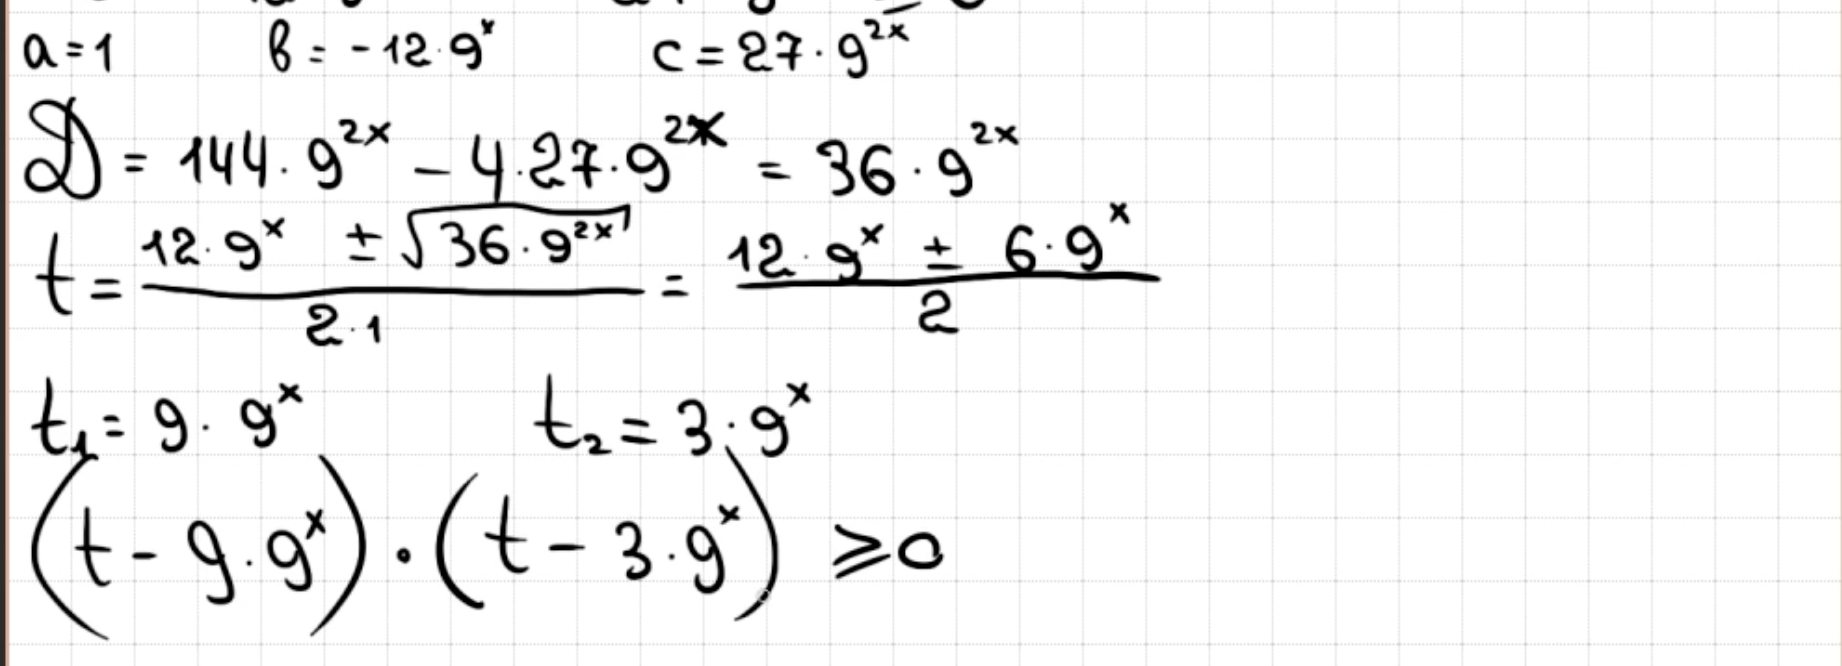 a = 1 в = -12·9ˣ c = 27·9²ˣ
D = 144·9²ˣ - 4·27·9²ˣ = 36·9²ˣ
t = (12·9ˣ ± √(36·9²ˣ))/(2·1) = (12·9ˣ ± 6·9ˣ)/2
t₁ = 9·9ˣ t₂ = 3·9ˣ
(t - 9·9ˣ)·(t - 3·9ˣ) ⩾ 0